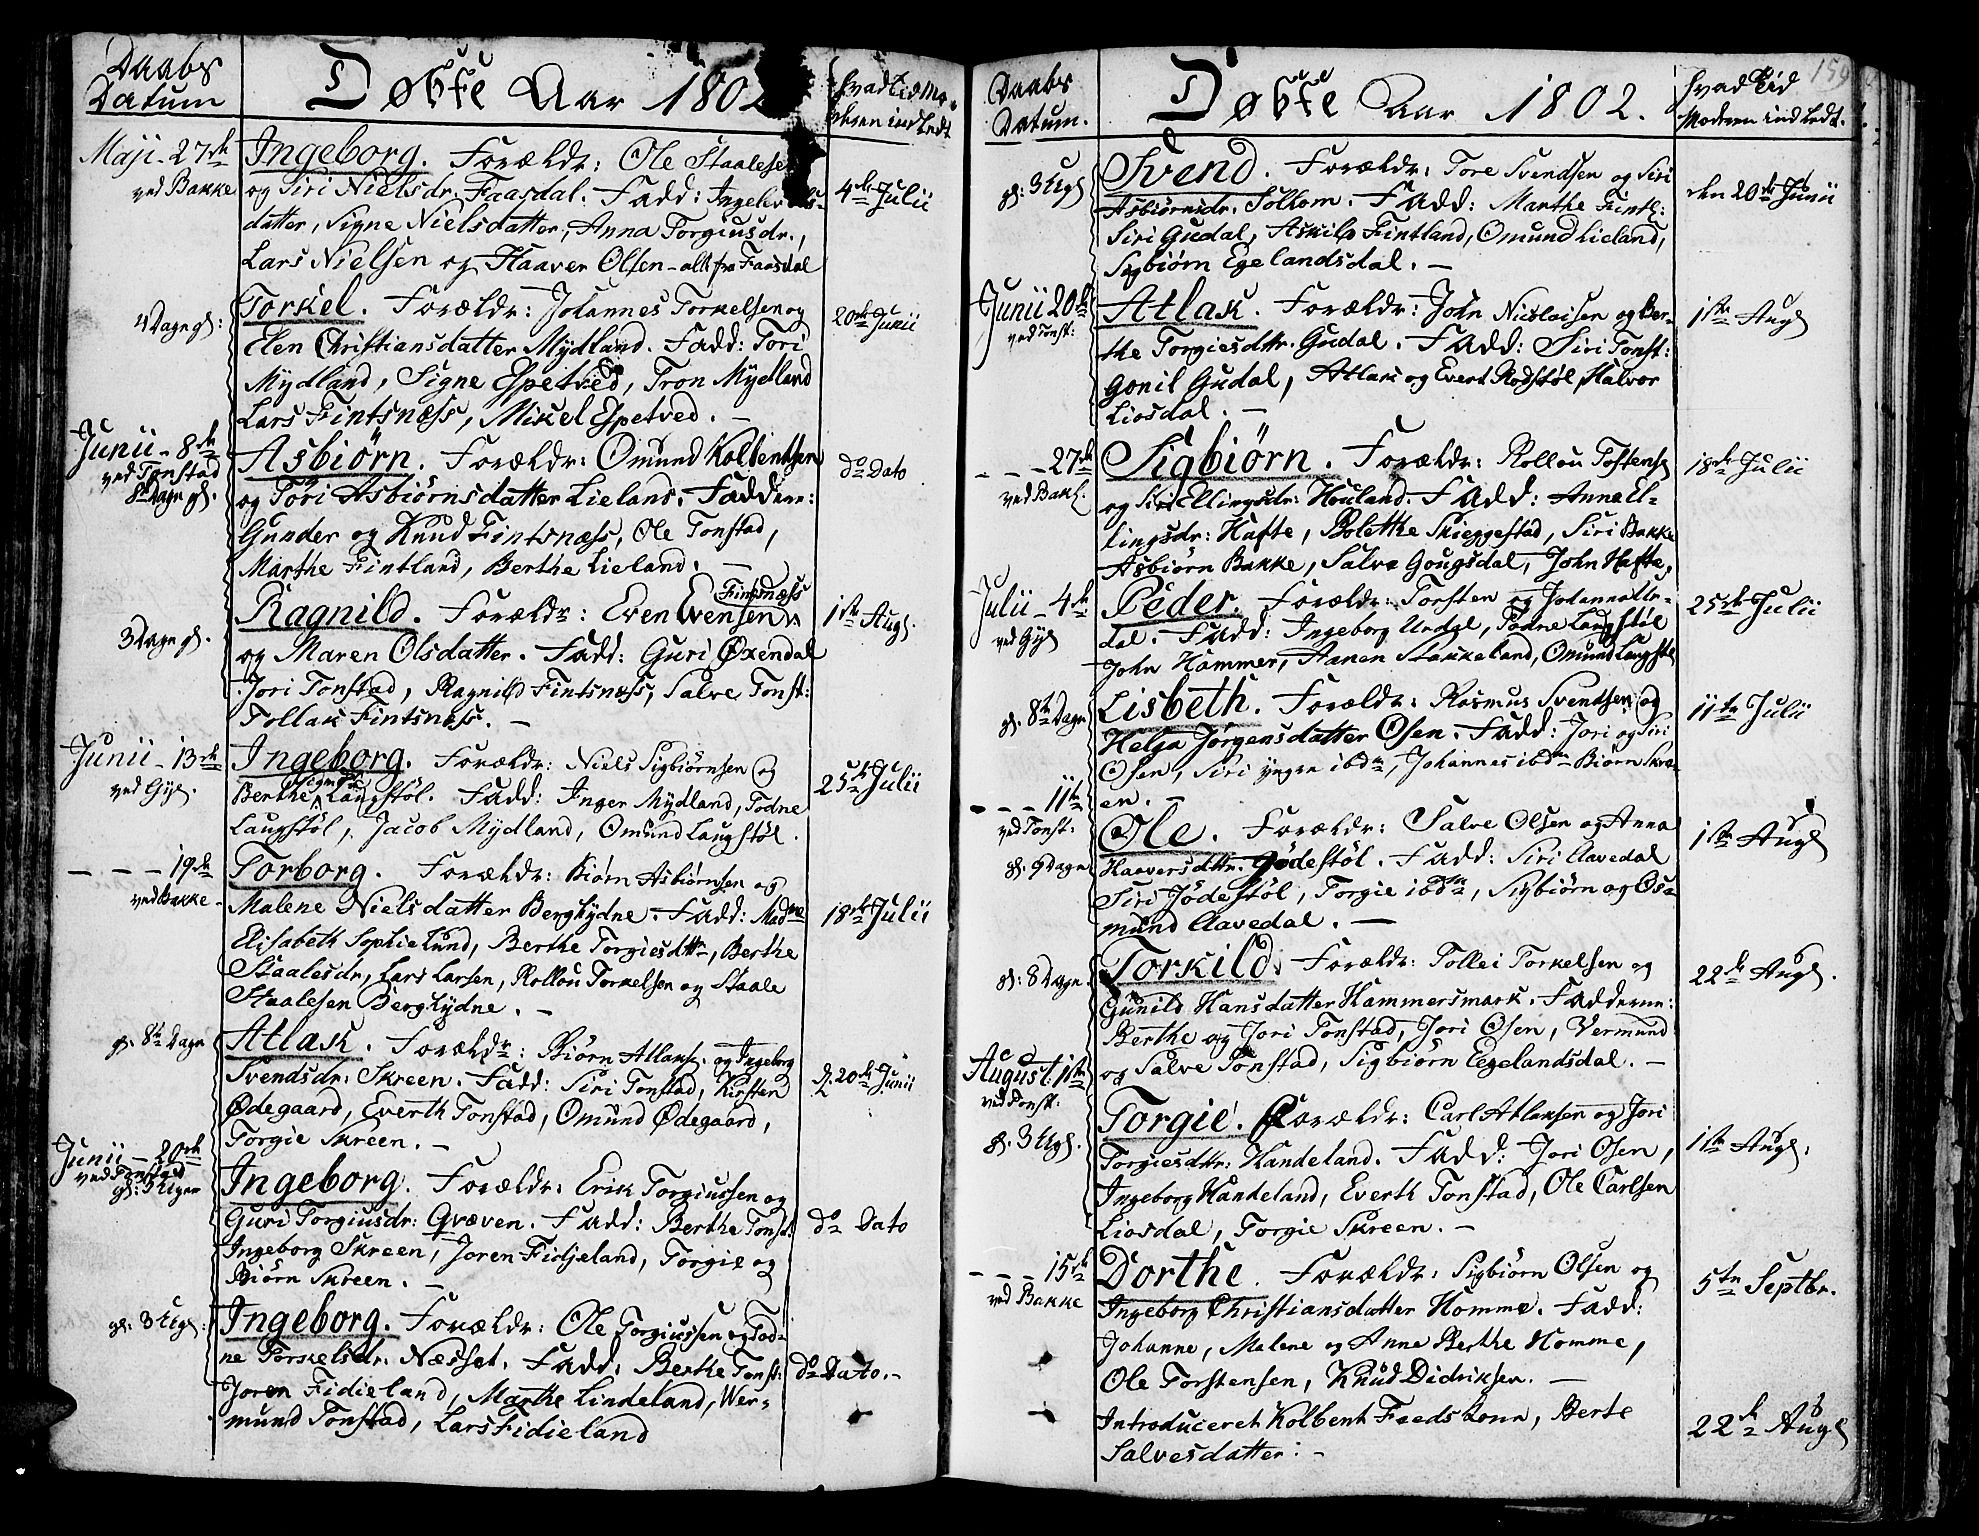 Daabs
Datum
Døbte Aar 1802
Hvad Tid Mo-
deren indledt
Maji 27de
ved Bakke
Ingeborg. Forældr: Ole Staalesen
og Siri Nielsdr. Faasdal. Fadd: Ingeb Ols-
datter, Signe Nielsdatter, Anna Torgiusdr.,
Lars Nielsen og Haaver Olsen - alle fra Faasdal
4de Julii
4 Dage gl:
Torkel. Forældr: Johannes Torkelsen og
Elen Christiansdatter Mydland. Fadd: Tori
Mydland, Signe Espetved, Tron Mydland
Lars Fintsnæss, Mikel Espetved. -
20de Junii
Junii - 8de
ved Tonstad
8 Dage gl.
Asbiörn. Forældr: Omund Kolbentsen
og Tori Asbiörnsdatter Lieland. Faddere:
Gunder og Knud Fintsnæss, Ole Tonstad,
Marthe Fintland, Berthe Lieland. -
do Dato
3 Dage gl.
Ragnild. Forældr: Even Evensen Fintsnæss
og Maren Olsdatter. Fadd: Guri Øxendal
Jori Tonstad, Ragnild Fintsnæss, Salve Tonst:
Tollak Fintsnæss. -
1ste Augs.
Junii - 13de
ved Gyl.
Ingeborg. Forældr: Niels Sigbiörnsen og
Berthe Sigmdr Laugstöl. Fadd: Inger Mydland, Todne
Laugstöl, Jacob Mydland, Omund Laugstöl.
25de Julii
- - - 19de
ved Bakke -
Torborg. Forældr: Biörn Asbiörnsen og
Malene Nielsdatter Berghydne. Fadd: Madme
Elisabeth Sophie Lund, Berthe Torgiesdttr, Berthe
Staalesdr, Lars Larsen, Rollou Torkelsen og Staale
Staalesen Berghydne. -
18de Julii
gl. 8te Dage
Atlak. Forældr: Biörn Atlaks. og Ingeborg
Svendsdr: Skreen. Fadd: Siri Tonstad, Kirsten
Ødegaard, Everth Tonstad, Omund Ødegaard,
Torgie Skreen. -
d. 20de Junii
Junii - 20de
ved Tonstad
gl: 3 Uger
Ingeborg. Forældr: Erik Torgiussen og
Guri Torgiusdr: Qvæven. Fadd: Berthe Tonst:
Ingeborg Skreen, Joren Fidjeland, Torgie og
Biörn Skreen. -
do Dato
gl. 3 Ug.
Ingeborg. Forældr: Ole Torgiussen og Tod-
ne Torkelsdr. Næsset. Fadd: Berthe Tonst:
Joren Fidieland, Marthe Lindeland, Wer-
mund Tonstad, Lars Fidieland
do Dato. -
Daabs
Datum.
Døbte Aar 1802.
Hvad Tid
Moderen indledt.
159
gl: 3 Ug.
Svend. Forældr: Tore Svendsen og Siri
Asbiörnsdr. Solkom. Fadd: Marthe Fintl:
Siri Gudal, Askild Fintland, Omund Lieland,
Sigbiörn Egelandsdal. -
den 20de Junii
Junii 20de
ved Tonst:
Atlak. Forældr: John Nicolaisen og Ber-
the Torgiesdttr. Gudal. Fadd: Siri Tonst:
Gonil Gudal, Atlak og Evert Rodstöl, Halvor
Liosdal. -
1ste Augs
- - - 27de
ved Bakk.
Sigbiörn. Forældr: Rollou Tostens.
og Siri Ellingsdr: Houland. Fadd: Anna El-
lingsdr: Hafte, Bolethe Skieggestad, Siri Bakke
Asbiörn Bakke, Salve Gougsdal, John Hafte,
18de Julii
Julii - 4de
ved Gyl
Peder. Forældr: Torsten og Johanna Ur-
dal. Fadd: Ingeborg Urdal, Todne Laugstöl
John Hammer, Aanen Stakkeland, Omund Laugstöl
25de Julii
gl. 8te Dage
Lisbeth. Forældr: Rasmus Svendsen og
Helga Jörgensdatter Osen. Fadd: Jori og Siri
Osen, Siri yngre ibdm, Johannes ibdm Biörn Skre-
en. -
11te Julii
- - - 11te
ved Tonst:
gl. 9 Dage
Ole. Forældr: Salve Olsen og Anna
Haaversdttr. Jödestöl. Fadd: Siri Aavedal
Siri Jödestöl, Torgie ibdm, Sigbiörn og Os-
mund Aavedal. -
1ste Augs
gl: 8 Dage.
Torkild. Forældr: Tollei Torkelsen og
Gunild Hansdatter Hammersmark. Fadderne:
Berthe og Jori Tonstad, Jori Osen, Vermund
og Salve Tonstad, Sigbiörn Eegelandsdal. -
22de Augs.
August: 1ste
ved Tonst:
gl. 3 Ug.
Torgie. Forældr: Carl Atlaksen og Jori
Torgiesdttr: Handeland. Fadd: Jori Osen,
Ingeborg Handeland, Everth Tonstad, Ole Carlsen
Liosdal, Torgie Skreen. -
1ste Augs.
- - - 15de
ved Bakke
Dorthe. Forældr: Sigbiörn Olsen og
Ingeborg Christiansdatter Homme. Fadd:
Johanne, Malene og Anne Berthe Homme,
Ole Torstensen, Knud Didriksen. -
5te Septbr.
Introduceret Kolbent Fredsbonn, Berte
Salvesdatter: -
22de Augs